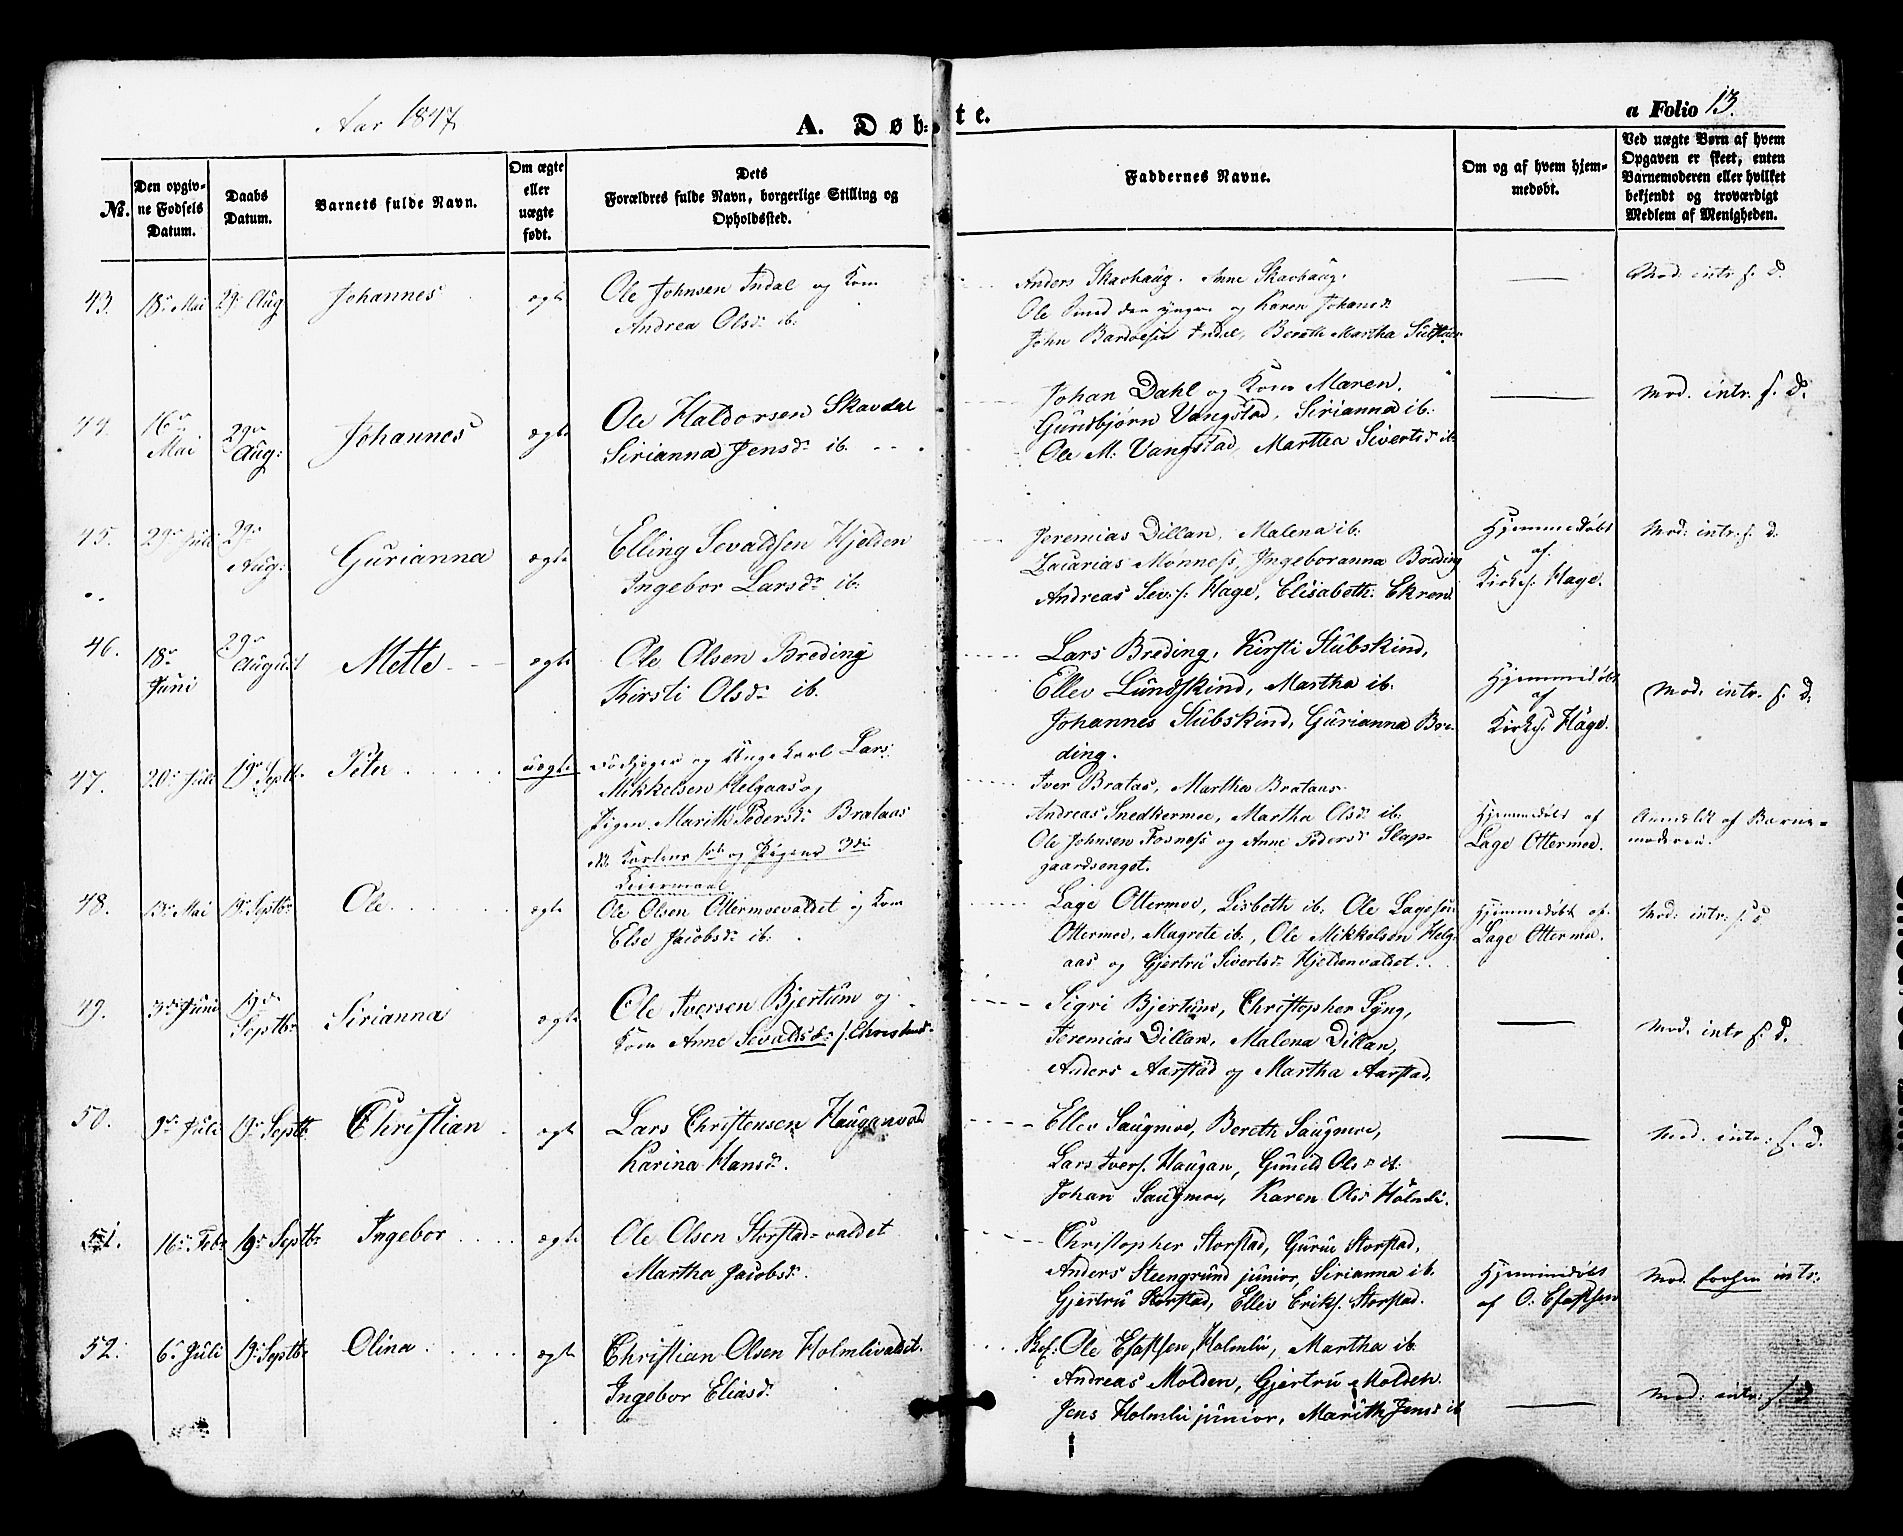 Aar 1847.
A. Døb-
te.
a Folio 13.
№.
Den opgiv-
ne Fødsels
Datum.
Daabs
Datum.
Barnets fulde Navn.
Om ægte
eller
uægte
født.
Dets
Forældres fulde Navn, borgerlige Stilling og
Opholdssted.
Faddernes Navne.
Om og af hvem hjem-
medøbt.
Ved uægte Børn af hvem
Opgaven er skeet, enten
Barnemoderen eller hvilket
bekjendt og troværdigt
Medlem af Menigheden.
43. 18de Mai 29de Aug Johannes ægte
Ole Johnsen Indal og Kone
Andrea Olsdr ib:
Anders Skavhaug. Anne Skavhaug.
Ole Smed den yngre og Karen Johansdr
John Bardoesen Indal, Bereth Martha
Mod: intr. s. d.
44. 16de Mai 29de Aug: Johannes ægte
Ole Haldorsen Skavdal
Sirianna Jensdr ib.
Johan Dahl og Kone Maren.
Gundbjørn Vangstad, Sirianna ib:
Ole M: Vangstad, Marthea Sivertsd ib
Mod. intr. s. d.
45. 29de Juli 29de Aug: Gurianna ægte
Elling Sevaldsen Hjelden
Ingebor Larsdr ib.
Jeremias Dillan, Malena ib:
Zacarias Mønness, Ingeboranna Breding
Andreas Sev:s: Hage, Elisabeth Ekren.
Hjemmedøbt
af
Kirkes: Hage.
Mod: intr. s. d.
46. 18de Juni 29de August Mette ægte
Ole Olsen Breding
Kirsti Olsdr ib.
Lars Breding, Kirsti Stubskind,
Ellev Lundskind, Martha ib:
Johannes Stubskind, Gurianna Bre-
ding.
Hjemmedøbt
af
Kirkes: Hage.
Mod: intr. s. d.
47. 20de Juli 19de Septbr Peter uægte
og Ungekarl Lars
Mikkelsen Helgaas og
Pigen Marith Pedersdr Brataas
NB Karlens og Pigens 3die
Leiermaal
Iver Brataas, Martha Brataas
Andreas Snedkermoe, Martha Olsdr ib.
Ole Johnsen Fosness og Anne Pedersdr Slap-
gaardsenget.
Hjemmedøbt af
Lage Ottermoe.
Anmeldt af Barne-
moderen.
48. 13de Mai 19de Septbr Ole ægte
Ole Olsen Ottermoevaldet og Kone
Else Jacobsdr ib:
Lage Ottermoe, Lisbeth ib: Ole Lagesen
Ottermoe, Magrete ib:, Ole Mikkelsen Helg-
aas og Gjertru Sivertsdr Hjeldenvaldet.
Hjemmedøbt af
Lage Ottermoe.
Mod: intr: s. d
49. 3de Juni 19de Septbr Sirianna ægte
Ole Iversen Bjertum og
Kone Anne Sevaldsdr
Sigri Bjertum, Christopher Lyng,
Jeremias Dillan, Malena Dillan,
Anders Aarstad og Martha Aarstad,
Mod: intr s. d.
50. 9de Juli 19de Septbr Christian ægte
Lars Christensen Hauganvald
Karina Hansd.
Ellev Saugmoe, Bereth Saugmoe,
Lars Ivers: Haugan, Gunild Olsdr ib:
Johan Saugmoe, Karen Olsd Holmli.
Mod: intr: s. d.
51. 16de Febr 19de Septbr Ingebor ægte
Ole Olsen Storstad-valdet
Martha Jacobsdr.
Christopher Storstad, Gurue Storstad,
Anders Steengrund junior, Sirianna ib.
Gjertru Storstad, Ellev Eriks. Storstad.
Hjemmedøbt
af O: Efastsen
Mod. forhen intr:
52. 6te Juli 19de Septbr Olina ægte
Christian Olsen Holmlivaldet.
Ingebor Eliasd.
Ole Efastsen, Holmli, Martha ib
Andreas Molden, Gjertru Molden.
Jens Holmli junior, Marith Jensd ib
Mod: intr: s. d